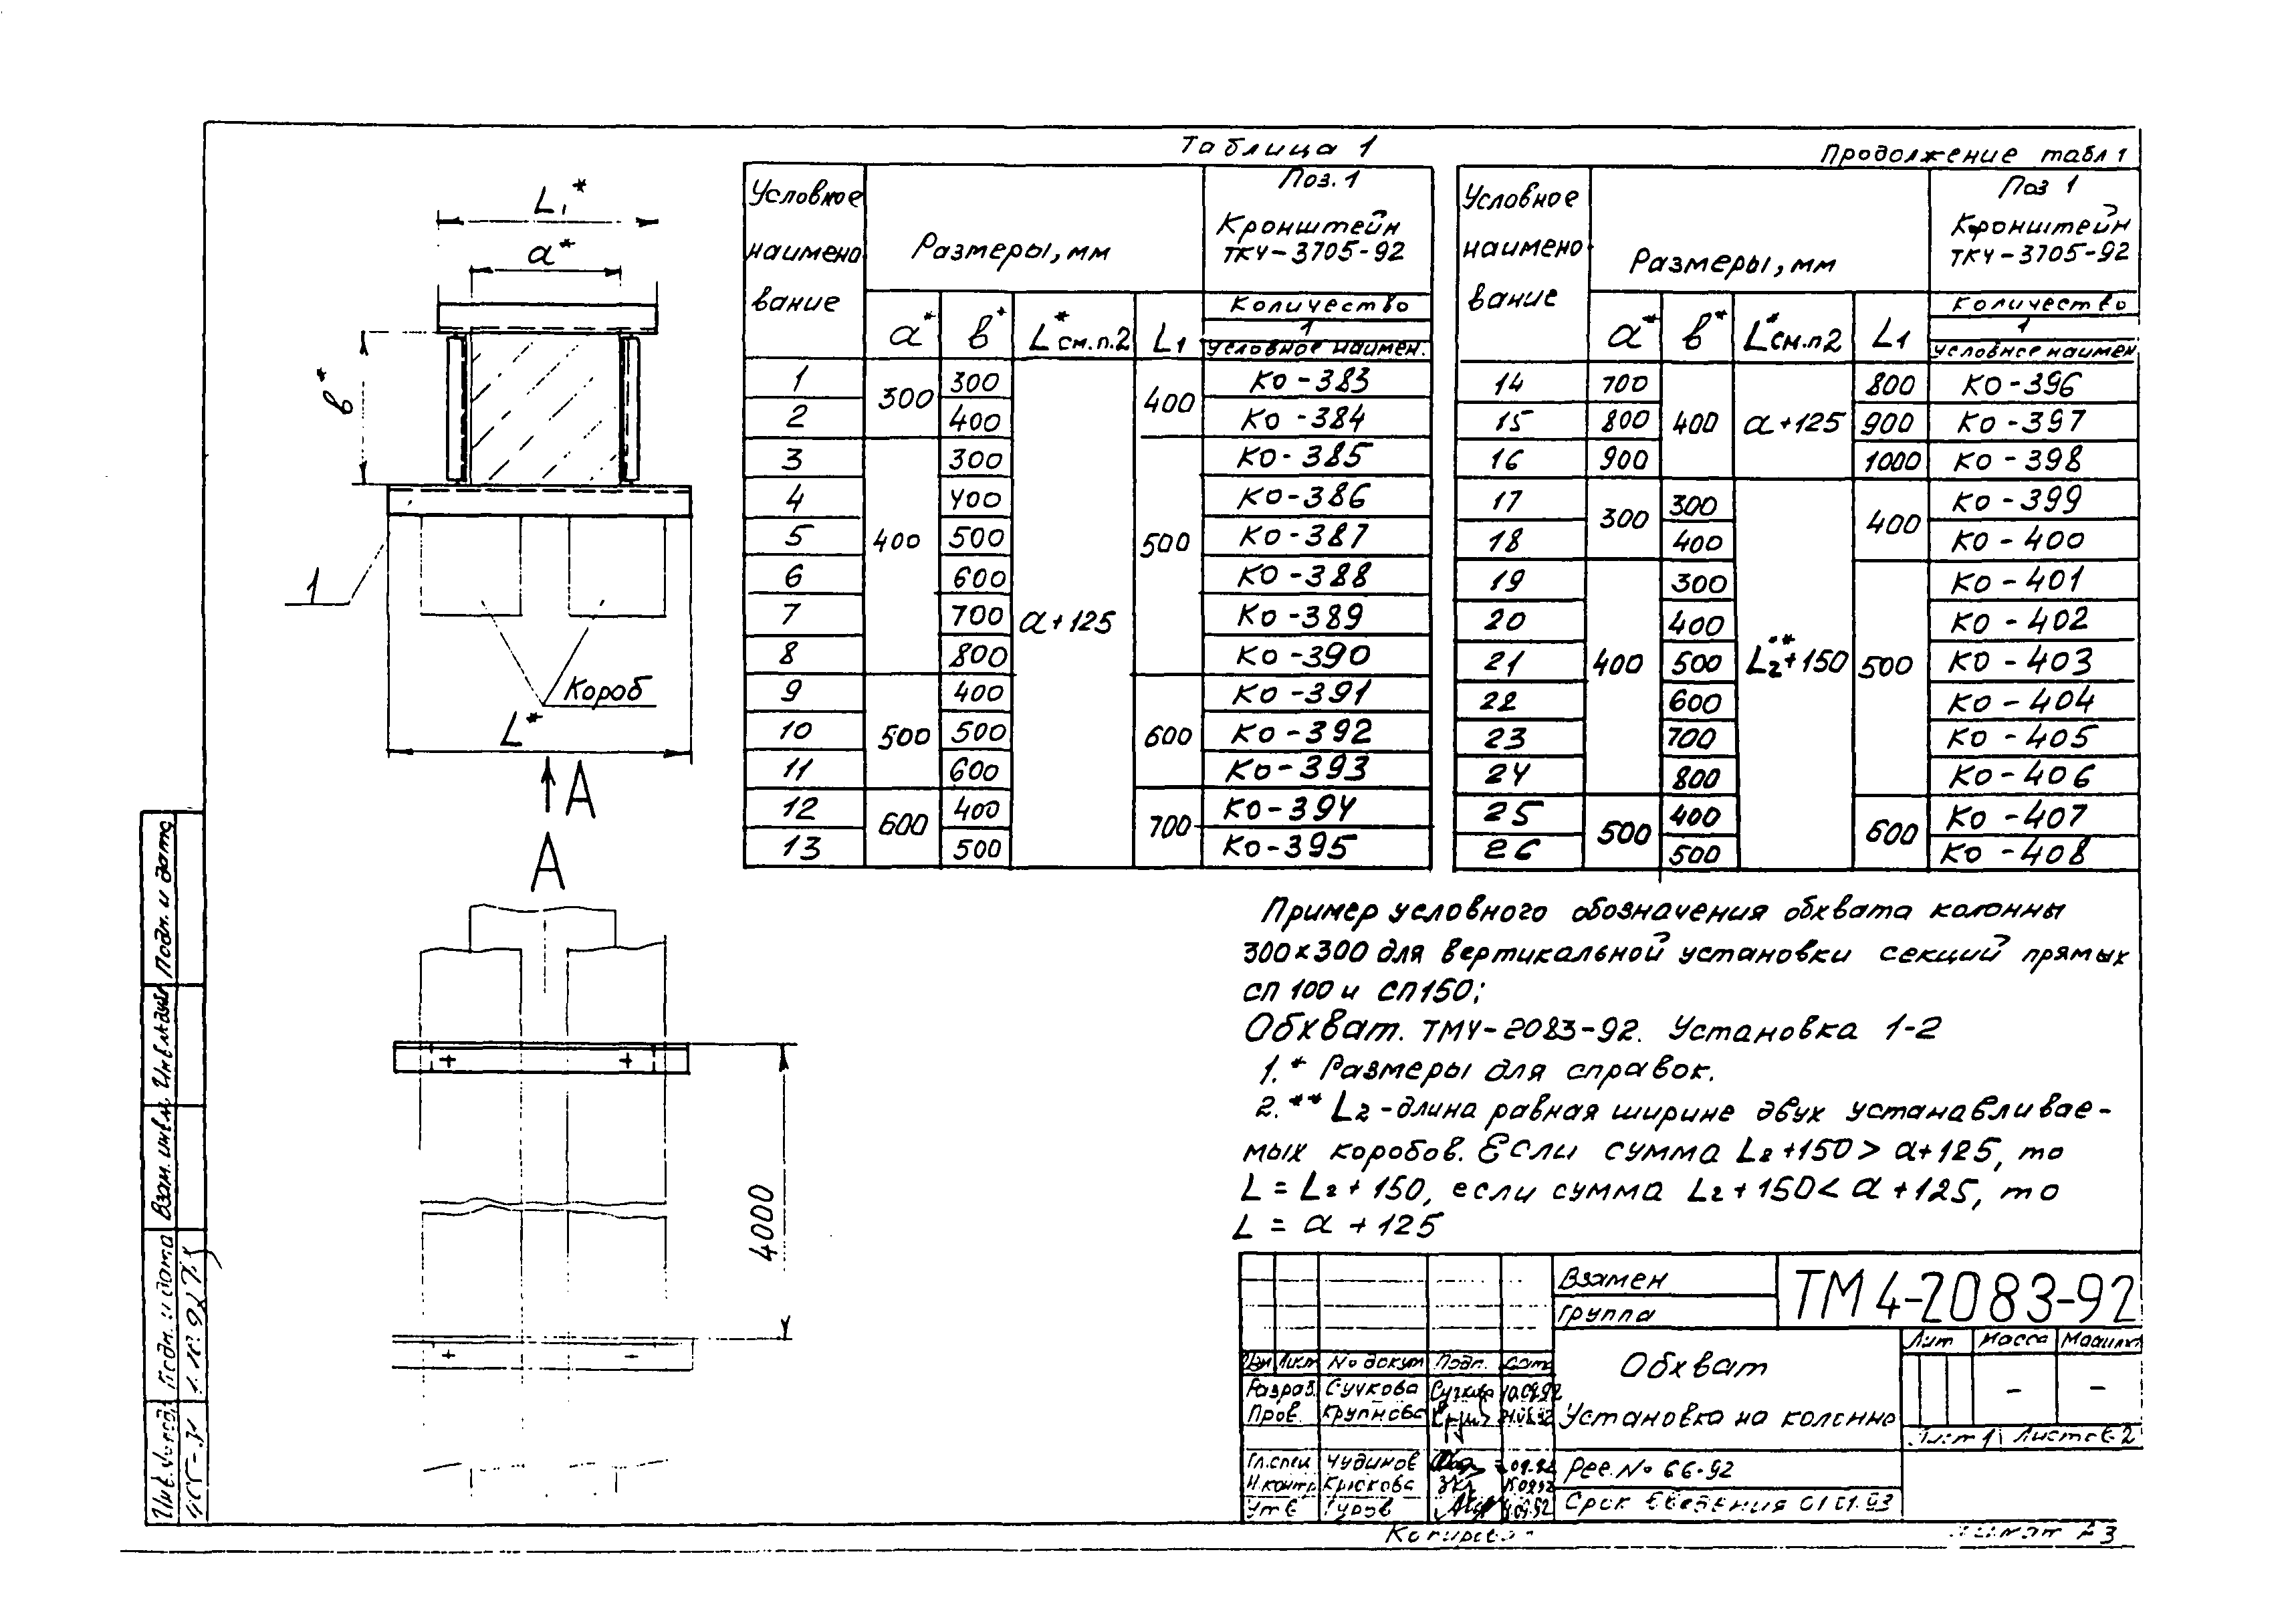 L₁*
a*
в*
1
Короб
L*
А
А
4000
Таблица 1
Условное наименование | Размеры, мм | Поз. 1 Кронштейн ТК4-3705-92
Количество
1
a* | в* | L* см.п.2 | L1 | условное наимен.
1 | 300 | 300 | a+125 | 400 | КО-383
2 | 400 | КО-384
3 | 400 | 300 | 500 | КО-385
4 | 400 | КО-386
5 | 500 | КО-387
6 | 600 | КО-388
7 | 700 | КО-389
8 | 800 | КО-390
9 | 500 | 400 | 600 | КО-391
10 | 500 | КО-392
11 | 600 | КО-393
12 | 600 | 400 | 700 | КО-394
13 | 500 | КО-395
Продолжение табл 1
Условное наименование | Размеры, мм | Поз 1 Кронштейн ТК4-3705-92
Количество
1
a* | в* | L* см.п2 | L1 | условное наимен
14 | 700 | 400 | a+125 | 800 | КО-396
15 | 800 | 900 | КО-397
16 | 900 | 1000 | КО-398
17 | 300 | 300 | L₂**+150 | 400 | КО-399
18 | 400 | КО-400
19 | 400 | 300 | 500 | КО-401
20 | 400 | КО-402
21 | 500 | КО-403
22 | 600 | КО-404
23 | 700 | КО-405
24 | 800 | КО-406
25 | 500 | 400 | 600 | КО-407
26 | 500 | КО-408
Пример условного обозначения обхвата колонны
300×300 для вертикальной установки секций прямых
СП 100 и СП150;
Обхват. ТМ4-2083-92. Установка 1-2
1.* Размеры для справок.
2.** L₂ - длина равная ширине двух устанавливае-
мых коробов. Если сумма L₂+150 > a+125, то
L = L₂ + 150, если сумма L₂ + 150 < a + 125, то
L = a + 125
Взамен
Группа
ТМ4-2083-92
Обхват
Установка на колонне
Лит | Масса | Масштаб
- | -
Лист 1 | Листов 2
Изм | Лист | № докум | Подп. | Дата
Разраб. | Сучкова
Пров. | Крупнова
Гл.спец | Чудинов
Н.контр | Крюкова
Утв | Гуров
Рег. № 66-92
Срок введения 01.01.93
Копировал
Формат А3
Подп. и дата
Инв.№дубл
Взам. инв.№
Подп. и дата
Инв.№подл